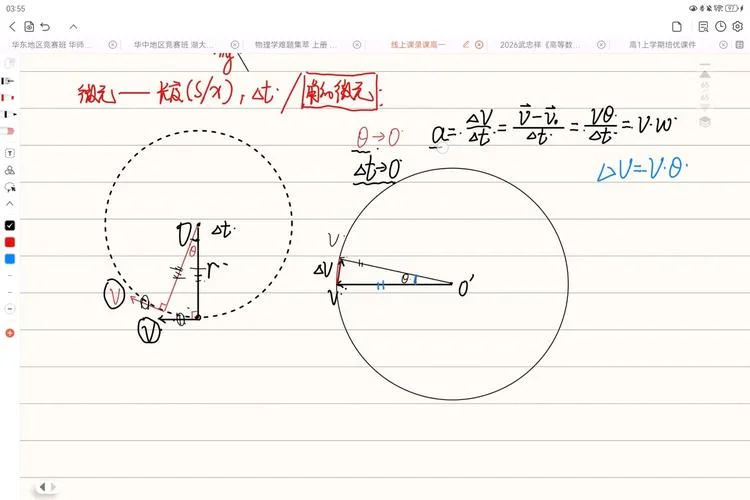 03:55
97
华东地区竞赛班 华师...
华中地区竞赛班 湖大...
物理学难题集萃 上册 ...
线上课录课高一
2026武忠祥《高等数...
高1上学期培优课件
mg
微元 —— 长度(S/x), Δt / 角的微元:
θ→0.
Δt→0
a = ΔV/Δt = (v⃗-v⃗₀)/Δt = Vθ/Δt = V·w.
ΔV=V·θ.
O Δt.
θ
r
V θ
V θ
V.
ΔV
V.
θ
O'
T
65
65
65